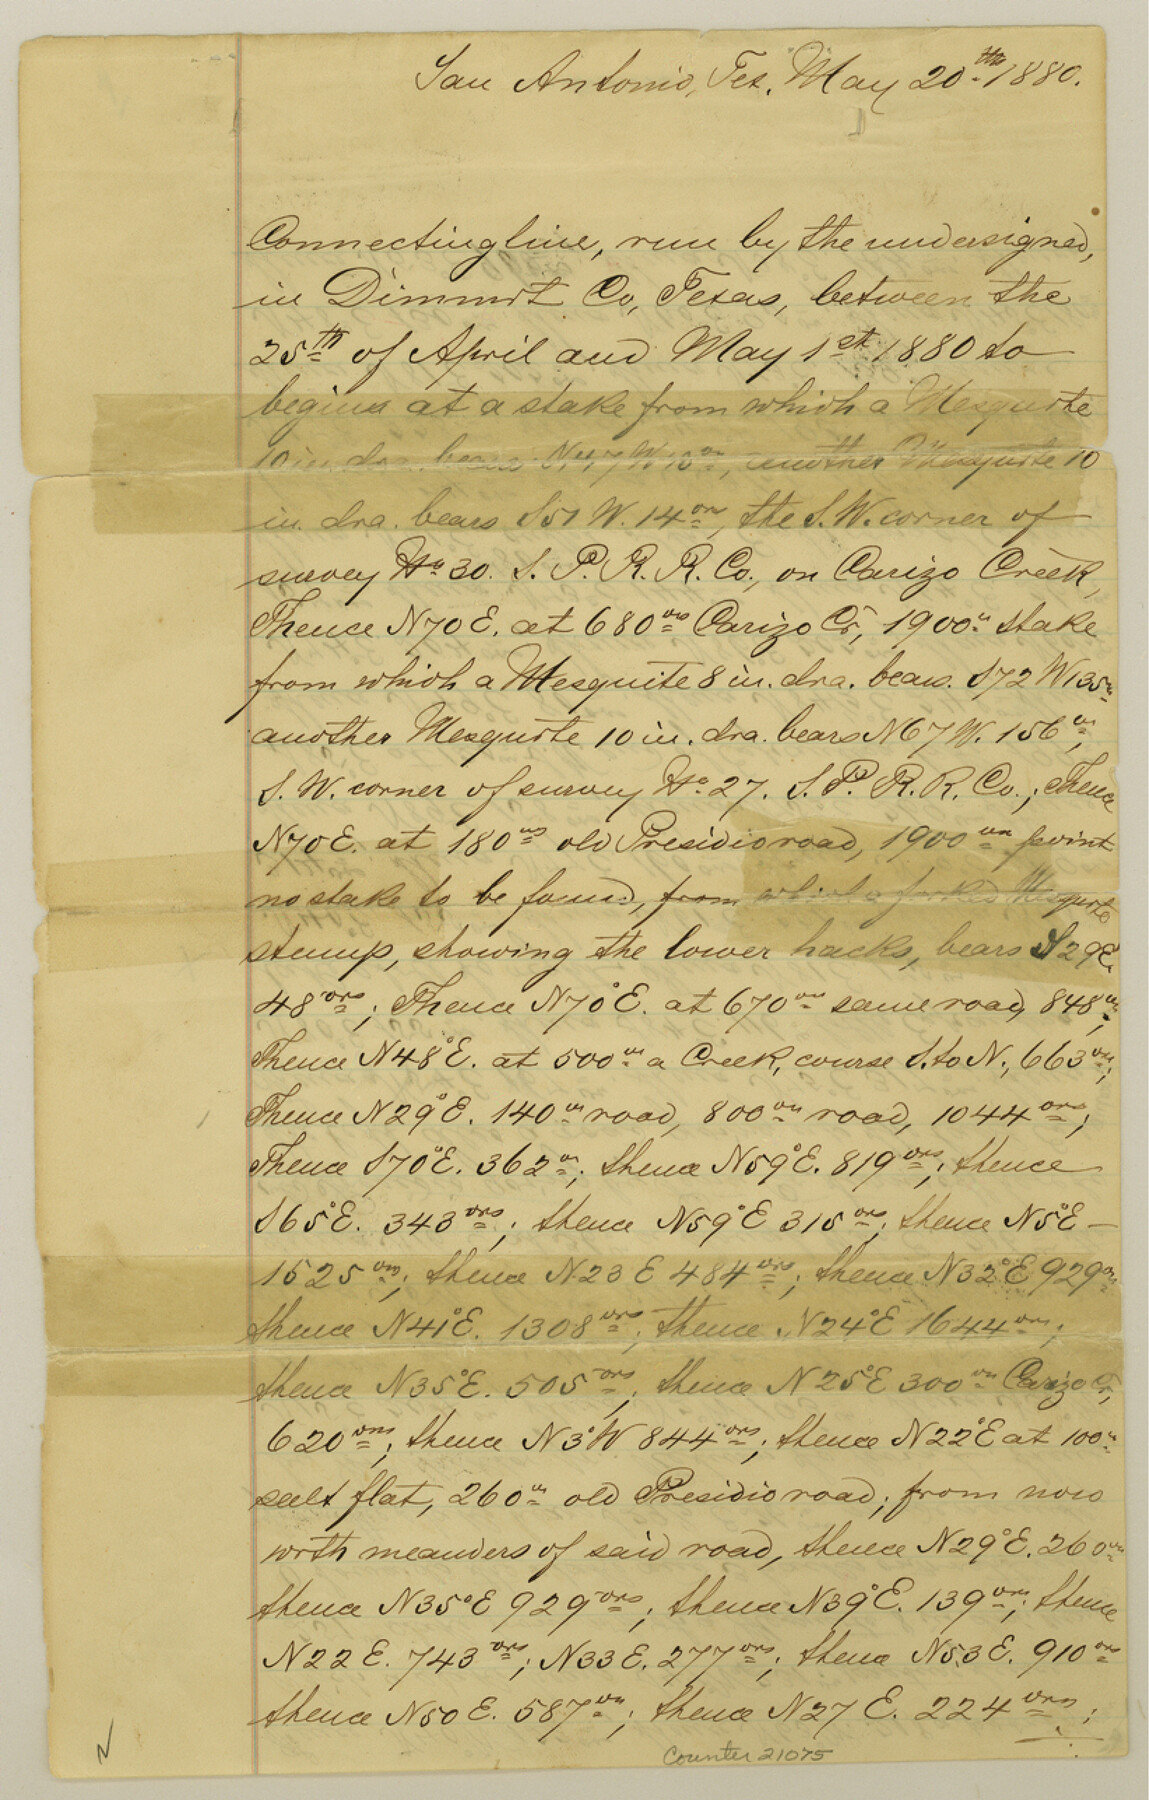 San Antonio, Tex. May 20th 1880.
Connecting line, run by the undersigned,
in Dimmit Co, Texas, between the
25th of April and May 1st 1880 to
begin at a stake from which a Mesquite
10 in dra. bears N47W 10 vrs, another Mesquite 10
in. dra. bears S51 W. 14 vrs, the S.W. corner of
survey No 30. S. P. R. R. Co., on Carizo Creek,
Thence N70E. at 680 vrs Carizo Cr, 1900 vs stake
from which a Mesquite 8 in. dra. bears. S72 W135 vs
another Mesquite 10 in. dra. bears N67W. 156 vs,
S. W. corner of survey No 27. S. P. R. R. Co.; Thence
N70E. at 180 vrs old Presidio road, 1900 vrs point
no stake to be found, from which a forked Mesquite
stump, showing the lower hacks, bears S29E.
48 vrs; Thence N70°E. at 670 vrs same road, 848 vs;
Thence N48°E. at 500 vs a Creek, course S. to N., 663 vrs;
Thence N29°E. 140 vs road, 800 vrs road, 1044 vrs;
Thence S70°E. 362 vs; thence N59°E. 819 vrs; thence
S65°E. 343 vrs; thence N59°E 315 vrs; thence N5°E —
1525 vrs; thence N23 E 484 vrs; thence N32°E 929 vrs
thence N41°E. 1308 vrs; thence N24°E 1644 vrs;
thence N35°E. 505 vrs; thence N25°E 300 vrs Carizo Cr,
620 vrs; thence N3°W 844 vrs; thence N22°E at 100 vs
salt flat, 260 vs old Presidio road; from now
with meanders of said road, thence N29°E. 260 vrs
thence N35°E 929 vrs; thence N39°E. 139 vrs; thence
N22E. 743 vrs; N33E. 277 vrs; thence N53E. 910 vrs
thence N50E. 587 vrs; thence N27E. 224 vrs;
Counter 21075
N